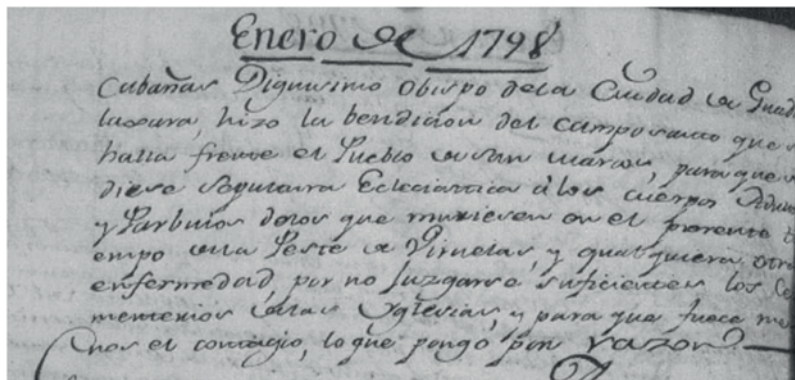 Enero de 1798
Cabañas Dignisimo Obispo de la Ciudad de Guad
laxara, hizo la bendicion del campo santo que s
halla frente el Pueblo de San Marcos, para que s
diese Sepultura Eclesiastica á los cuerpos Adu
y Parbulos de los que muriesen en el presente ti
empo de la Peste de Viruelas, y qualquiera otra
enfermedad, por no Juzgarse suficientes los Ce
menterios de las Yglesias, y para que fuese me
nos el contagio, lo que pongo por razon